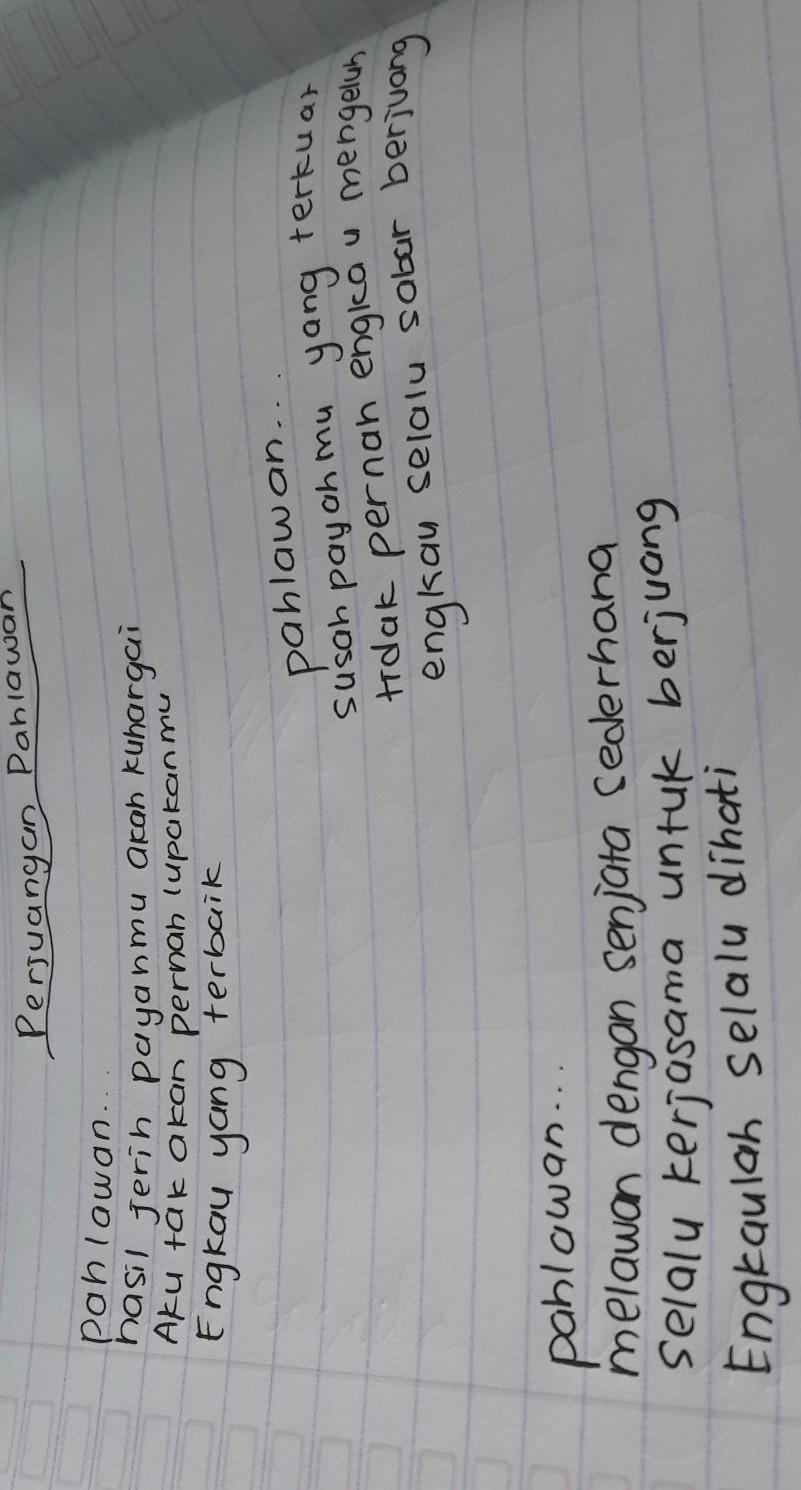 Perjuangan Pahlawan
pahlawan...
hasil jerih payahmu akah kuhargai
Aku tak akan pernah lupakanmu
Engkau yang terbaik
pahlawan...
susah payahmu yang terkuat
tidak pernah engkau mengeluh
engkau selalu sabar berjuang
pahlawan...
melawan dengan senjata sederhana
selalu kerjasama untuk berjuang
Engkaulah selalu dihati